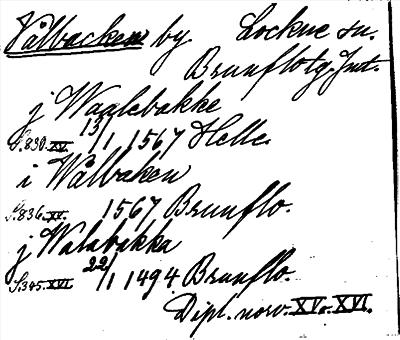 Vålbacken by Lockne sn.
Brunflo tg. Jmt.
j Waalebakke
S.830.XV. 13/1 1567 Helle.
i Wålbaken
S.836.XV. 1567 Brunflo.
j Walabakka
S.345.XVI. 22/1 1494 Brunflo.
Dipl. norv. XV o. XVI.